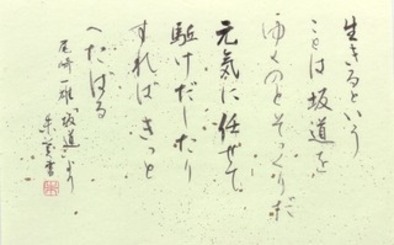 生きるという
ことは坂道を
ゆくのとそっくりだ
元気に任せて
駈けだしたり
すれば きっと
へたばる
尾崎一雄「坂道」より